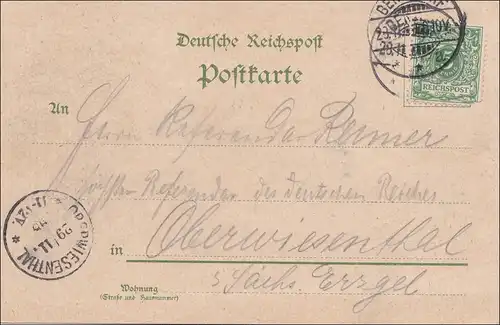 Deutsche Reichspost
Postkarte
REICHSPOST
An Herrn Referendar Römer
Höchster Referendar des deutschen Reiches
in Oberwiesenthal
Sächs. Erzgeb
Wohnung
(Straße und Hausnummer)
OBERWIESENTHAL
29/11.
11-12V.